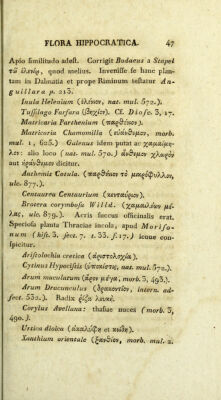 FLORA HIPPOCRATICA. 47
Apio similitudo adest. Corrigit Bodaeus a Stapel
τῶ ἑλενίῳ, quod melius. Invenisse se hanc plan-
tam in Dalmatia et prope Riminum testatur An-
guillara p. 213.
Inula Helenium (ἑλένιον, nat. mul. 572.).
Tussilago Farfara (βηχίον). Cf. Diosc. 3, 17.
Matricaria Parthenium (παρθένιον).
Matricaria Chamomilla (εὐάνθεμον, morb.
mul. 1, 625.) Galenus idem putat ac χαμαίμη-
λον: alio loco (nat. mul. 570.) ἄνθεμον χλωρὸν
aut ἠράνθεμον dicitur.
Anthemis Cotula. (παρθένιον τὸ μικρόφυλλον,
ulc. 877.).
Centaurea Centaurium (κενταύριον).
Brotera corymbosa Willd. (χαμαιλέων μέ-
λας, ulc. 879.). Acris succus officinalis erat.
Speciosa planta Thraciae incola, apud Moriso-
num (hist. 3. sect. 7. t. 33. f. 17.) icone con-
spicitur.
Aristolochia cretica (ἀριστολοχία).
Cytinus Hypocistis (ὑποκίστη, nat. mul. 572.).
Arum maculatum (ἄρον μέγα, morb. 3, 493.).
Arum Dracunculus (δρακοντίου, intern. ad-
fect. 532.). Radix ῥίζα λευκέ.
Corylus Avellana: thasiae nuces (morb. 3,
490.).
Urtica dioica (ἀκαλύφη et κνίδη).
Xanthium orientale (ξανθίον, morb. mul. 2.